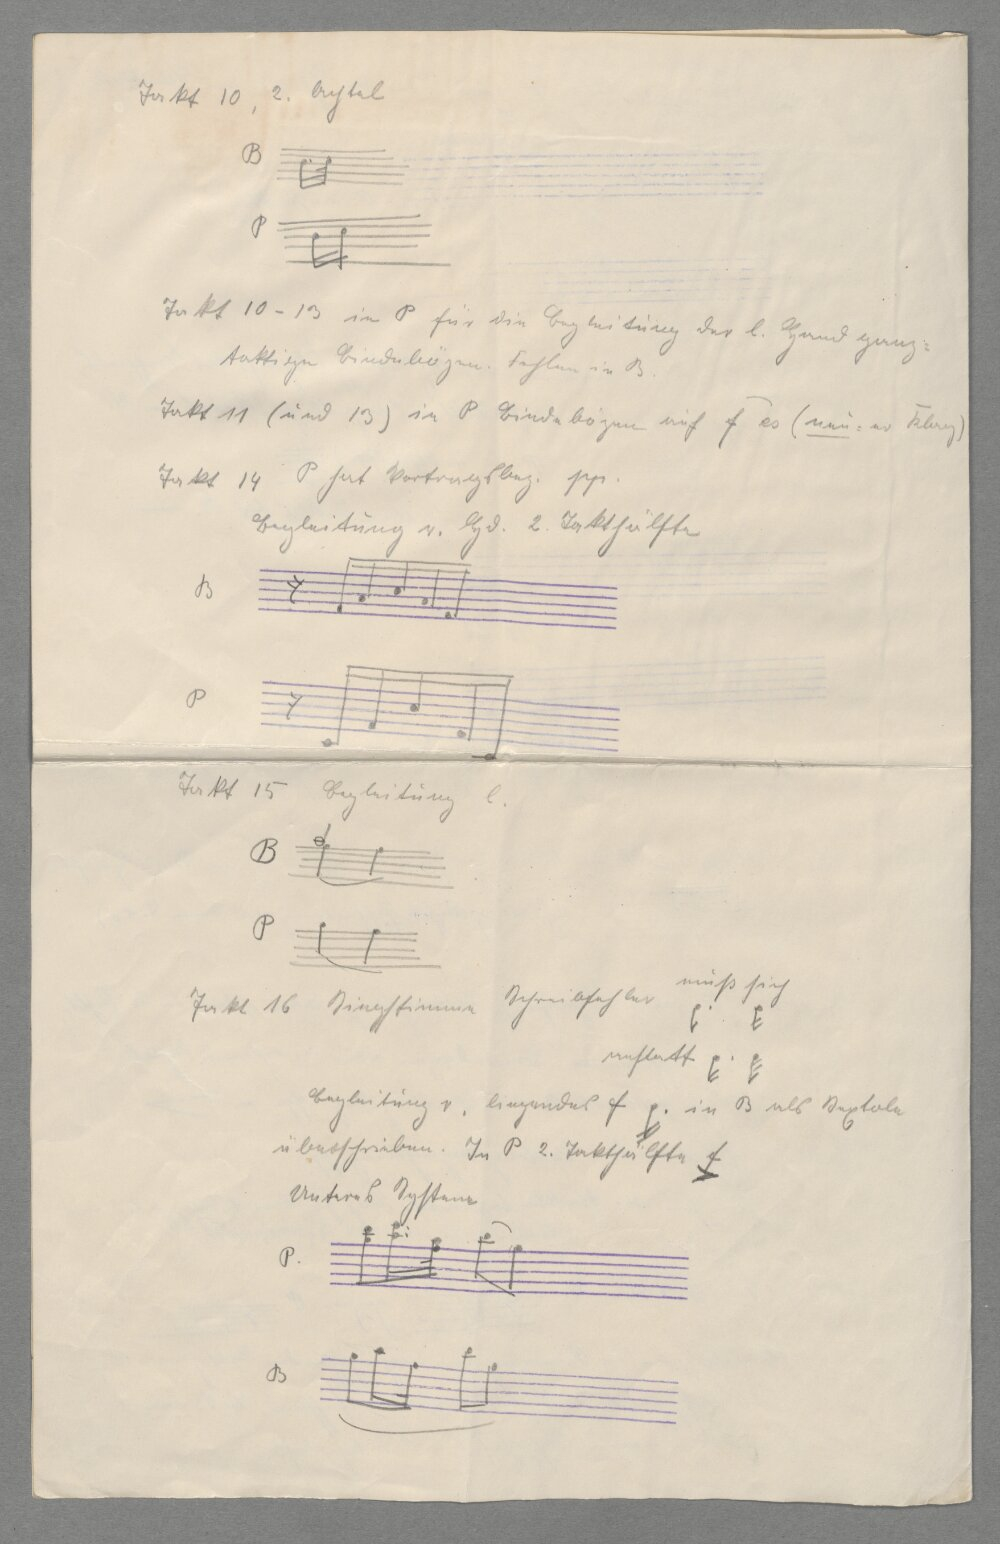 Takt 10, 2. Achtel
B
P
Takt 10–13 in P für die Begleitung der l. Hand ganz=
taktige Bindebögen. Fehlen in B.
Takt 11 (und 13) in P Bindebögen auf f es (neu=er Klang)
Takt 14 P hat Vortragsbez. pp.
Begleitung r. Hd. 2. Takthälfte
B
P
Takt 15 Begleitung l.
B
P
Takt 16 Singstimme Schreibfehler muß sich
anstatt
Begleitung r. liegendes f in B als Sextole
überschrieben. In P 2. Takthälfte f
Unteres System
P.
B